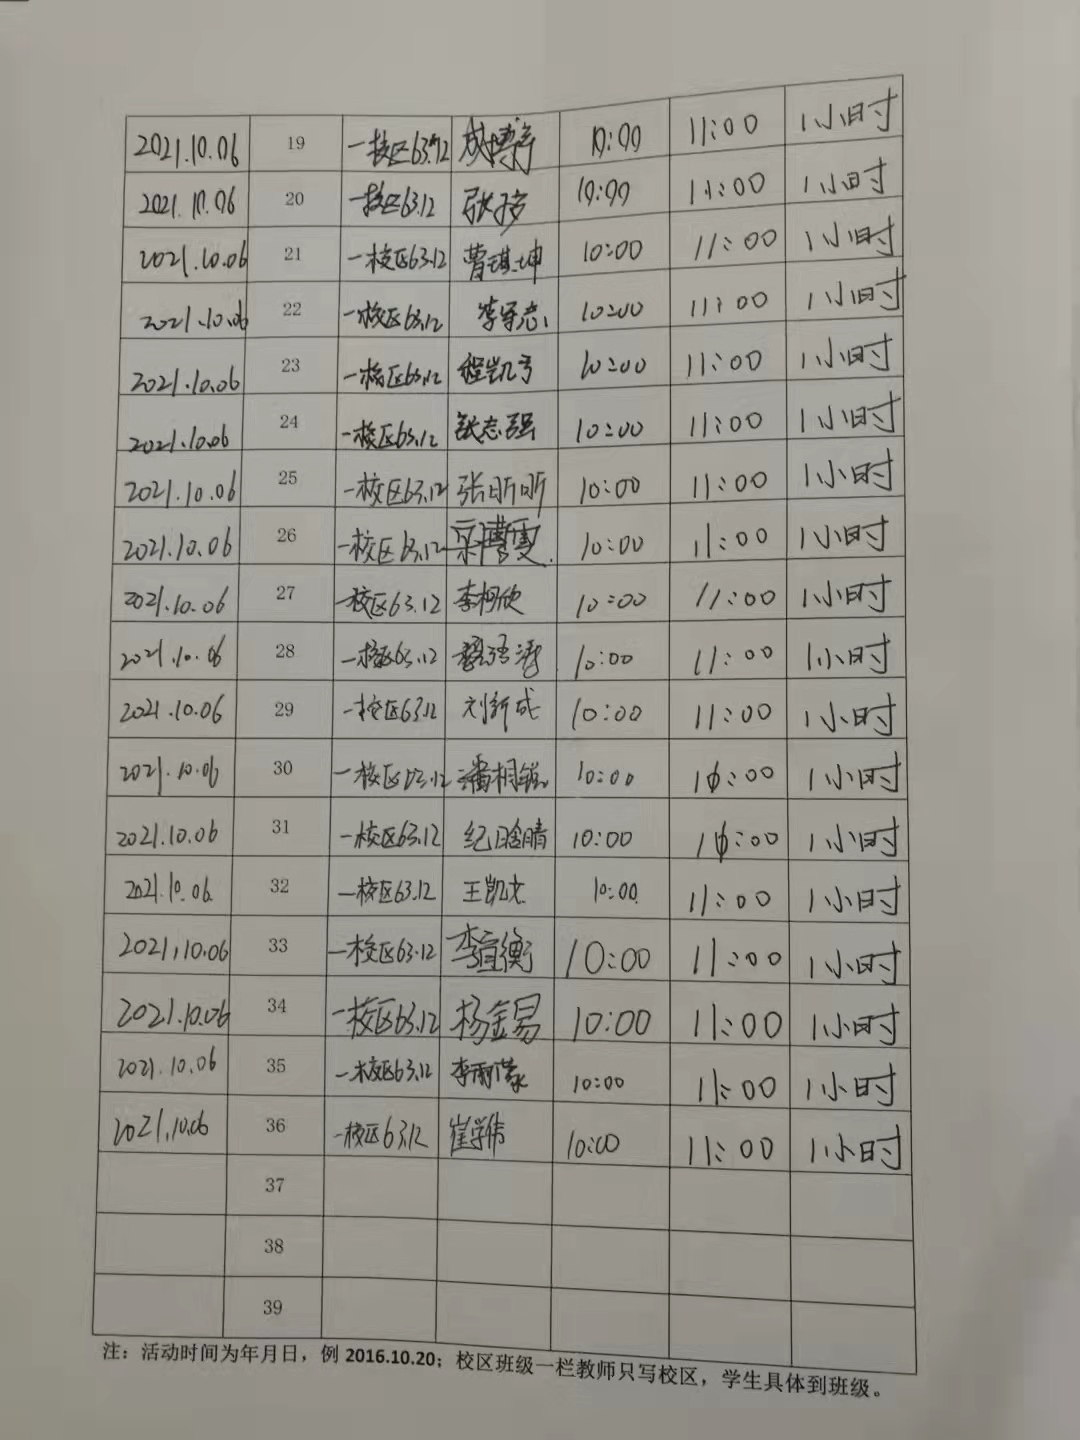 2021.10.06 19 一校区63.12 成博宇 10:00 11:00 1小时
2021.10.06 20 一校区63.12 10:00 11:00 1小时
2021.10.06 21 一校区63.12 曹琪坤 10:00 11:00 1小时
2021.10.06 22 一校区63.12 10:00 11:00 1小时
2021.10.06 23 一校区63.12 10:00 11:00 1小时
2021.10.06 24 一校区63.12 张志强 10:00 11:00 1小时
2021.10.06 25 一校区63.12 张昕昕 10:00 11:00 1小时
2021.10.06 26 一校区63.12 10:00 11:00 1小时
2021.10.06 27 一校区63.12 李柯欣 10:00 11:00 1小时
2021.10.06 28 一校区63.12 10:00 11:00 1小时
2021.10.06 29 一校区63.12 刘新成 10:00 11:00 1小时
2021.10.06 30 一校区63.12 10:00 11:00 1小时
2021.10.06 31 一校区63.12 纪晗晴 10:00 11:00 1小时
2021.10.06 32 一校区63.12 王凯文 10:00 11:00 1小时
2021.10.06 33 一校区63.12 李宣衡 10:00 11:00 1小时
2021.10.06 34 一校区63.12 杨金易 10:00 11:00 1小时
2021.10.06 35 一校区63.12 李雨濛 10:00 11:00 1小时
2021.10.06 36 一校区63.12 崔学伟 10:00 11:00 1小时
37
38
39
注：活动时间为年月日，例 2016.10.20；校区班级一栏教师只写校区，学生具体到班级。